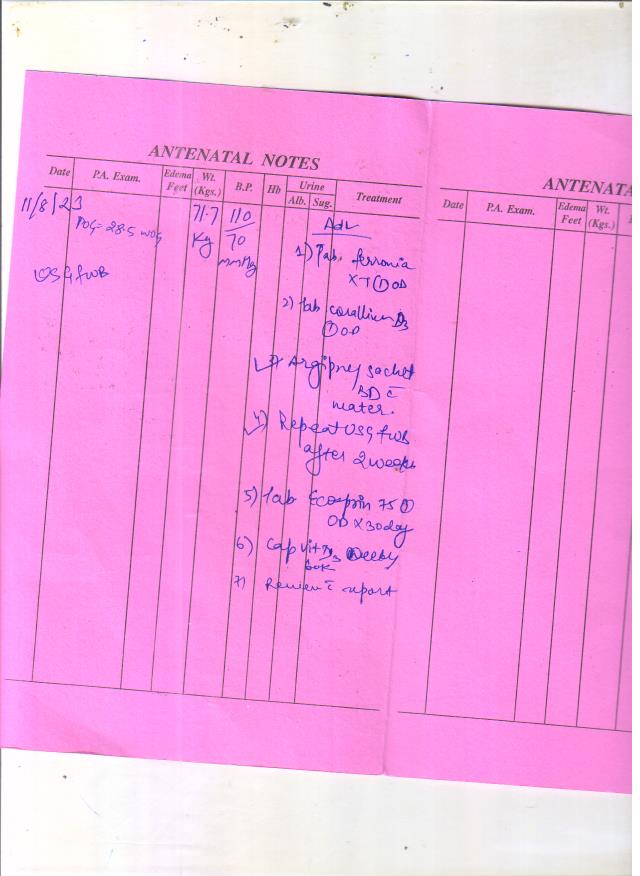 ANTENATAL NOTES
Date P.A. Exam. Edema Feet Wt. (Kgs.) B.P. Hb Urine Alb. Sug. Treatment
11/8/23
POG = 28.5 WOG
71.7 Kg
110/70 mmHg
USG FWB
Adv
1) Tab. ferronia
XT ① OD
2) Tab corallium D3
① OD
3) Argipreg sachet
BD c̄
water.
4) Repeat USG FWB
after 2 weeks
5) Tab Ecosprin 75 ①
OD X 30 day
6) Cap Vit D3 weekly
60K
7) Review c̄ report
ANTENATA
Date P.A. Exam. Edema Feet Wt. (Kgs.)